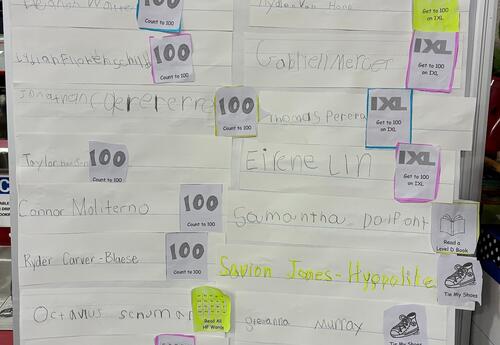 100
Count to 100
Get to 100
on IXL
100
Count to 100
Gabriel Mercer
IXL
Get to 100
on IXL
Jonathan
100
Count to 100
Thomas Perera
IXL
Get to 100
on IXL
Taylor
100
Count to 100
Eirene Lin
IXL
Get to 100
on IXL
Connor Moliterno
100
Count to 100
Samantha DalPont
Read a
Level D Book
Ryder Carver-Blaese
100
Count to 100
Savion Jones-Hyppolite
Tie My Shoes
Octavius Schuman
Read All
HF Words
Murray
Tie My Shoes
100